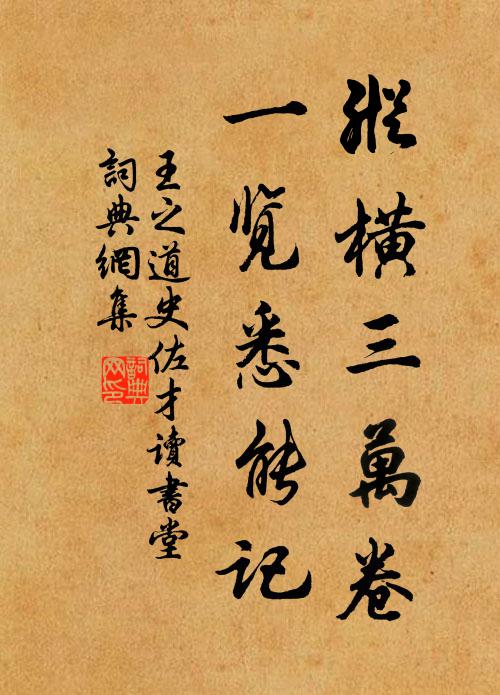 縱橫三萬卷
一覽悉能記
王之道史佐才讀書堂
詞典網集
詞典
网印